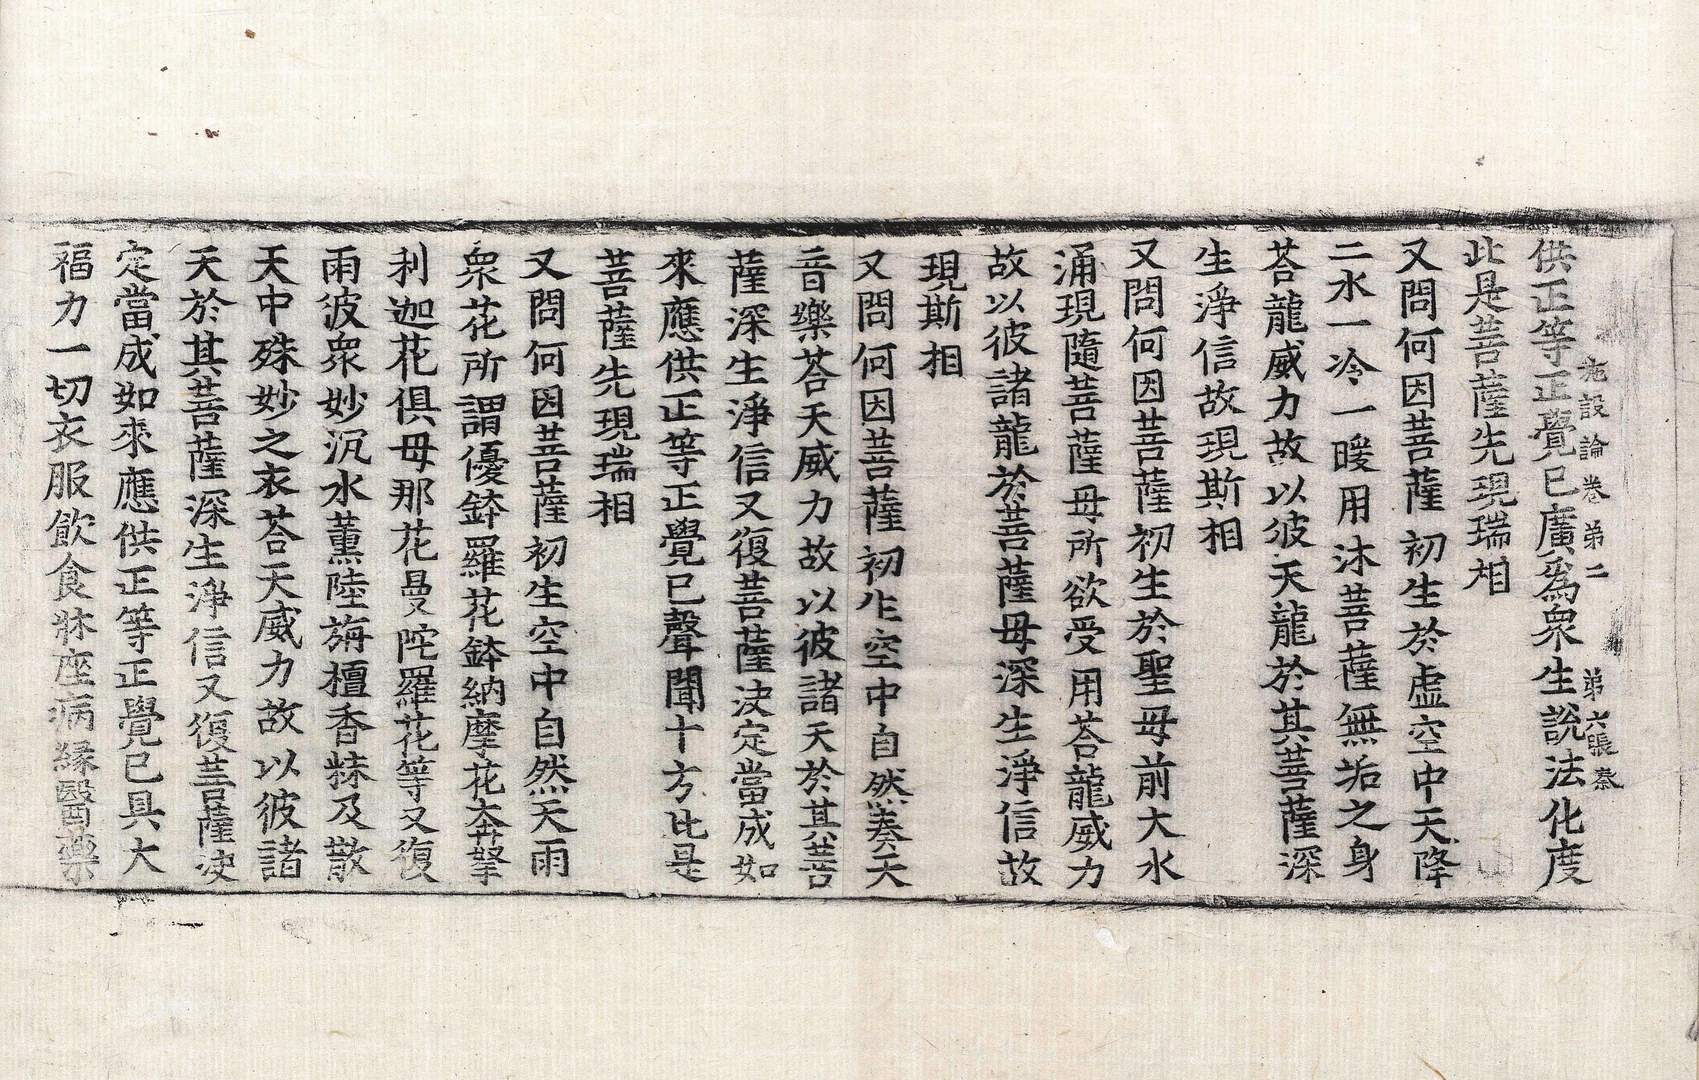 施設論卷第二 第六張 秦
供正等正覺已廣爲衆生說法化度
此是菩薩先現瑞相
又問何因菩薩初生於虛空中天降
二水一冷一暖用沐菩薩無垢之身
荅龍威力故以彼天龍於其菩薩深
生淨信故現斯相
又問何因菩薩初生於聖母前大水
涌現隨菩薩母所欲受用荅龍威力
故以彼諸龍於菩薩母深生淨信故
現斯相
又問何因菩薩初生空中自然奏天
音樂荅天威力故以彼諸天於其菩
薩深生淨信又復菩薩決定當成如
來應供正等正覺已聲聞十方此是
菩薩先現瑞相
又問何因菩薩初生空中自然天雨
衆花所謂優鉢羅花鉢納摩花奔拏
利迦花俱母那花曼陀羅花等又復
雨彼衆妙沉水薰陸旃檀香粖及散
天中殊妙之衣荅天威力故以彼諸
天於其菩薩深生淨信又復菩薩決
定當成如來應供正等正覺已具大
福力一切衣服飲食牀座病緣醫藥